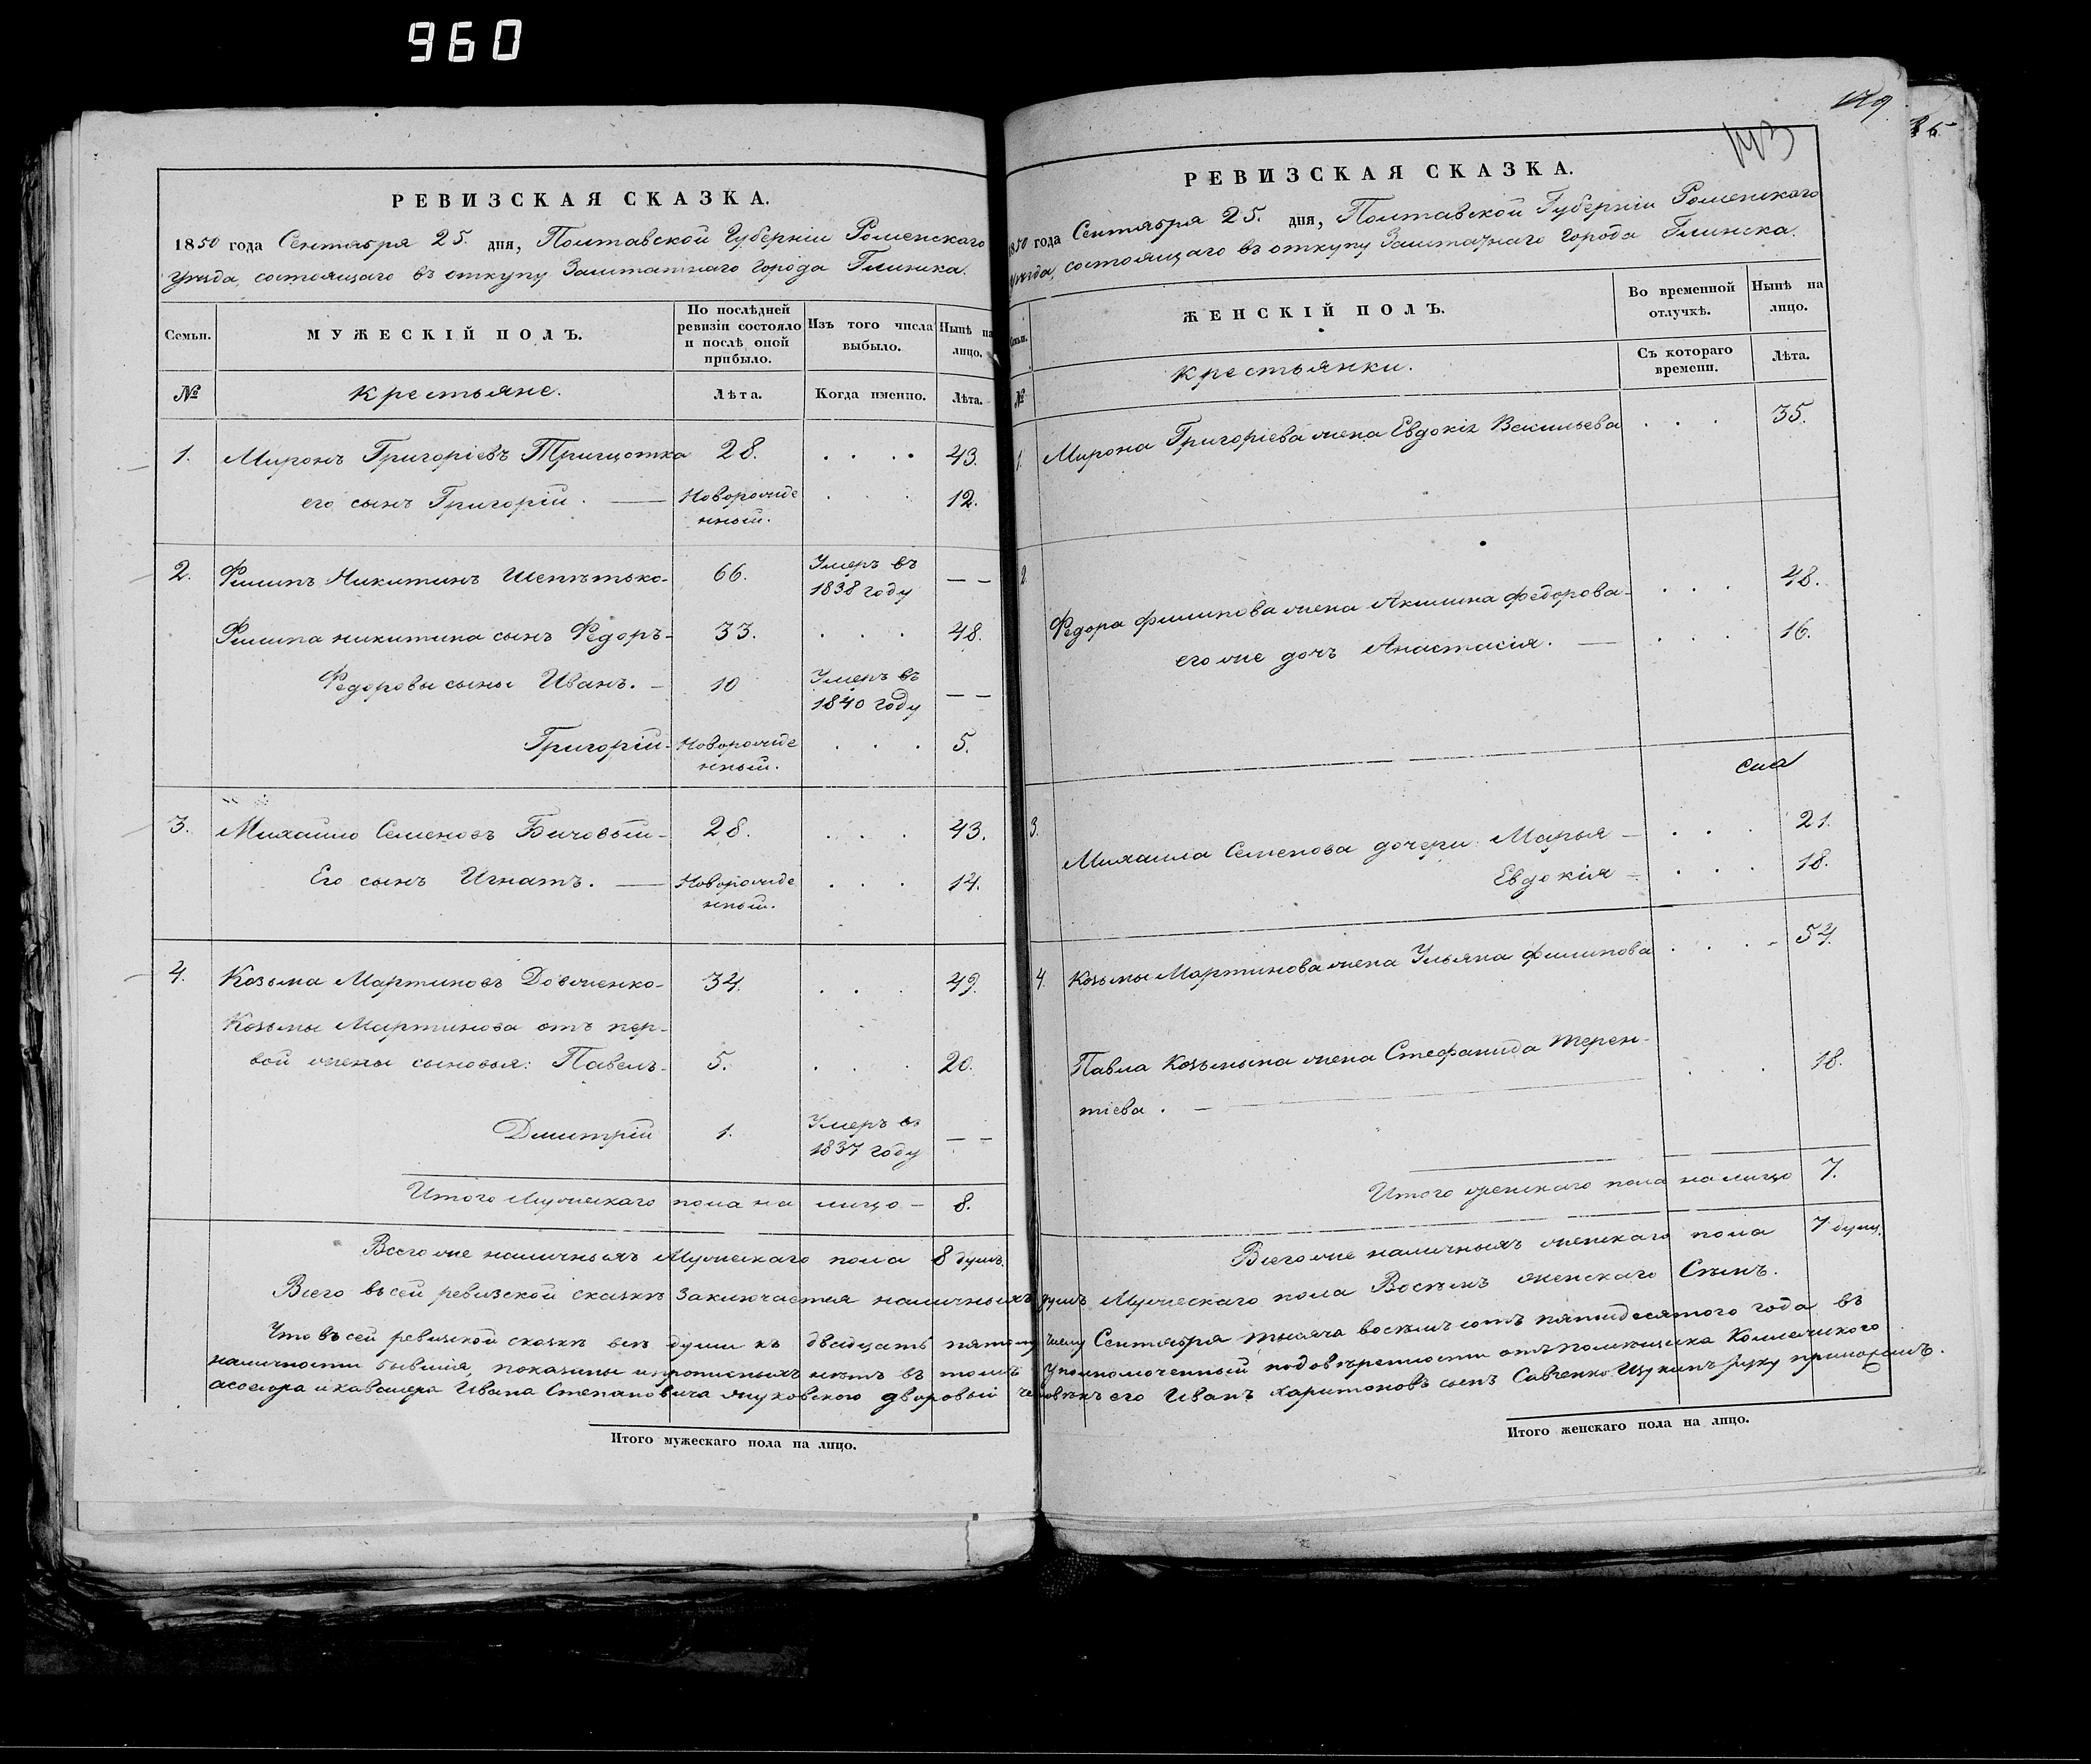 960
РЕВИЗСКАЯ СКАЗКА.
1850 года Сентября 25. дня, Полтавской Губерніи Роменскаго
Уѣзда, состоящаго въ откупу Заштатнаго Города Глинска.
Семьи.
МУЖЕСКІЙ ПОЛЪ.
По послѣдней ревизіи состояло и послѣ оной прибыло.
Изъ того числа выбыло.
Нынѣ на лицо.
№
Крестьяне.
Лѣта.
Когда именно.
Лѣта.
1. Миронъ Григоріевъ 28. . . . . 43.
его сынъ Григорій. — Новорожденный. . . . 12.
2. Филипъ Никитинъ Шепѣтько- 66. Умеръ въ 1838 году — —
Филипа Никитина сынъ Федоръ- 33. . . . 48.
Федоровы сыны Иванъ. — 10 Умеръ въ 1840 году — —
Григорій- Новорожденный. . . . 5.
3. Михайло Семеновъ Бичовый- 28. . . . 43.
Его сынъ Игнатъ. — Новорожденный. . . . 14.
4. Козьма Мартиновъ Довженко- 34. . . . 49.
Козьмы Мартинова отъ пер-
вой жены сыновья: Павелъ- 5. . . . 20.
Дмитрій 1. Умеръ въ 1837 году — —
Итого Мужескаго пола на лицо — 8.
Всего же наличныхъ Мужескаго пола 8 душъ.
Итого мужескаго пола на лицо.
179
113
36
РЕВИЗСКАЯ СКАЗКА.
1850 года Сентября 25. дня, Полтавской Губерніи Роменскаго
Уѣзда, состоящаго въ откупу Заштатнаго Города Глинска.
Семьи.
ЖЕНСКІЙ ПОЛЪ.
Во временной отлучкѣ.
Нынѣ на лицо.
№
Крестьянки.
Съ котораго времени.
Лѣта.
1. Мирона Григоріева жена Евдокія Васильева . . . 35.
2.
Федора Филипова жена Акилина Федорова- . . . 48.
его же дочь Анастасія. — . . . 16.
3.
Михаила Семенова дочери: Марья — . . . 21.
Евдокія — . . . 18.
4. Козьмы Мартинова жена Ульяна Филипова . . . 54.
Павла Козьмина жена Стефанида Терен-
тіева. — . . . 18.
Итого женскаго пола на лицо 7.
Всего же наличныхъ женскаго пола 7 душъ.
Всего въ сей ревизской сказкѣ заключается наличныхъ душъ Мужескаго пола Восѣмъ женскаго Сѣмъ.
Что въ сей ревизской сказкѣ всѣ души къ двадцать пятому числу Сентября тысяча восѣмъ сотъ пятидесятого года въ
наличности бывшія, показаны и прописныхъ нѣтъ въ томъ Уполномоченный по довѣренности отъ помѣщика Коллежского
асесора и кавалера Ивана Степановича Жуковского дворовый человѣкъ его Иванъ Харитоновъ сынъ Савченко-Щукинъ руку приложилъ.
Итого женскаго пола на лицо.